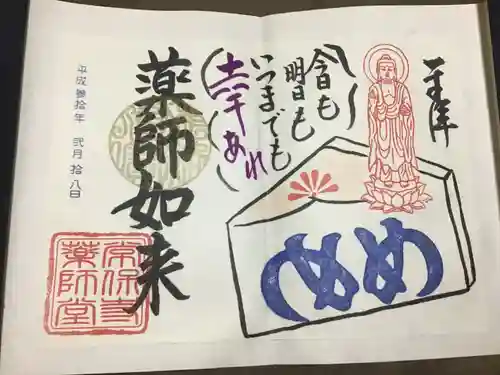 奉拝
今日も
明日も
いつまでも
幸あれ
めめ
薬師如来
常保寺
薬師堂
平成參拾年 弐月 拾八日